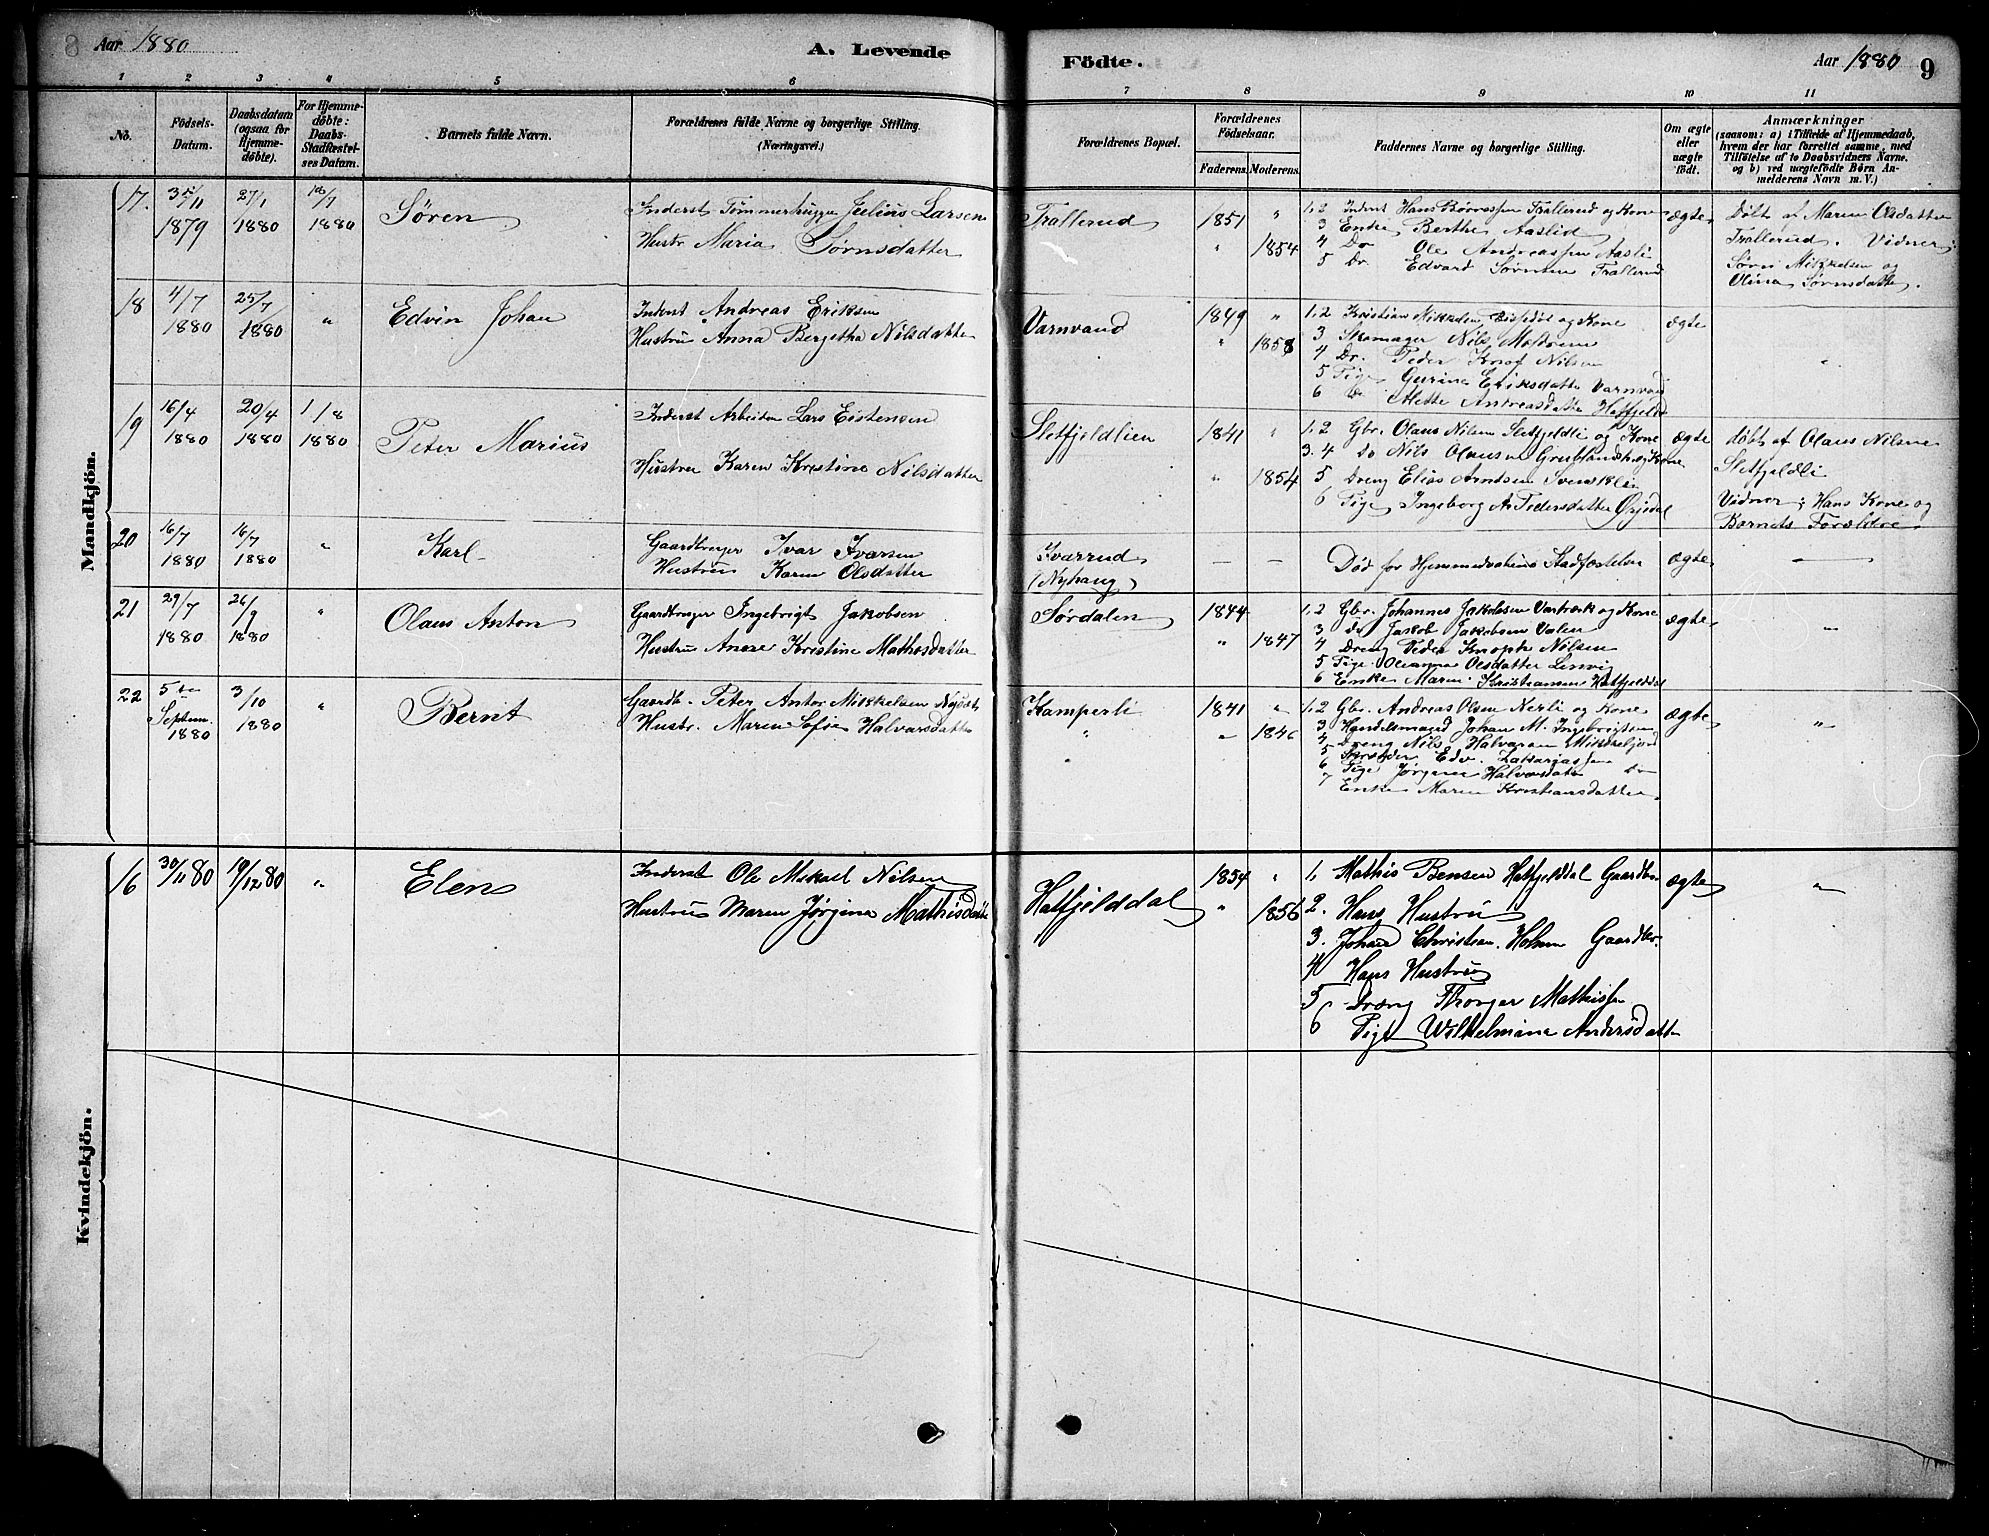 8
Aar 1880
A. Levende
Födte.
Aar 1880
9
1 2 3 4 5 6 7 8 9 10 11
No.
Födsels-Datum.
Daabsdatum (ogsaa for Hjemme-döbte).
For Hjemme-döbte: Daabs-Stadfæstel-ses Datum.
Barnets fulde Navn.
Forældrenes fulde Navne og borgerlige Stilling.
(Næringsvei.)
Forældrenes Bopæl.
Forældrenes Födselsaar.
Faderens. Moderens.
Faddernes Navne og borgerlige Stilling.
Om ægte eller uægte födt.
Anmærkninger
(saasom: a) i Tilfælde af Hjemmedaab, hvem der har forrettet samme, med Tilföielse af to Daabsvidners Navne, og b) ved uægtefödte Börn Anmelderens Navn m. V.)
Mandkjön.
17.
1879
27/1
1880
1880
Sören
Inderst Tömmerhugger Julius Larsen
Hustr Maria Sörnsdatter
Trallerud
1851 "
" 1854
1.2 Inderst Hans Trallerud og Kone
3 Enke Berthe Aaslid
4 Do Ole Andreassen Aasli
5 Dr. Edvard Sörnsen Trallerud
ægte
Döbt af Maren Olsdatter
Trallerud. Vidner:
Sören Mikkelsen og
Olina Sörnsdatter.
18
4/7
1880
25/7
1880
"
Edvin Johan
Inderst Andreas Eriksen
Hustru Anna Bergitha Nilsdatter
Varnvand
1849 "
" 1858
1.2 Kristian Mikkelsen og Kone
3 Skomager Nils
4 Dr. Peder Knof Nilsen
5 Pige Gurina Eriksdatter Varnvand
6 Do Mette Andreasdatter Hatfjeldd
ægte
"
19
16/4
1880
20/4
1880
1/8
1880
Peter Marius
Inderst Arbeider Lars Eistensen
Hustru Karen Kristine Nilsdatter
Sletfjeldlien
1841 "
" 1854
1.2 Gbr. Olaus Nilsen Sletfjeldli og Kone
3.4 do Nils Olausen og Kone
5 Dreng Elias Arntsen Svenskli
6 Pige Ingeborg A. Pedersdatter
ægte
döbt af Olaus Nilsen
Sletfjeldli
Vidner: Hans Kone og
Barnets Forældre
20
16/7
1880
16/7
1880
"
Karl
Gaardbruger Ivar Ivarsen
Hustru Karen Olsdatter
Ivarrud
(Nyhaug)
— —
Död för Hjemmedaabens Stadfæstelse
ægte
—
21
29/7
1880
26/9
1880
"
Olaus Anton
Gaardbruger Ingebrigt Jakobsen
Hustru Anne Kristine Mathosdatter
Sördalen
1844
" 1847
1.2 Gbr. Johannes Jakobsen og Kone
3 Do Jakob Jakobsen Valen
4 Dreng Peder Knoph Nilsen
5 Pige Oleanna Olsdatter Lenvig
6 Enke Maren Kristiansen Hatfjelddal
ægte
"
22
5te
Septem.
1880
3/10
1880
"
Bernt
Gaardb. Peter Anton Mikkelsen
Hustr. Maren Sofie Halvarsdatter
Kamperli
"
1841 "
" 1846
1.2 Gbr. Andreas Olsen Nerli og Kone
3 Handelsmand Johan M. Ingebrigtsen
4 Dreng Nils Halvarsen Mikkeljord
5 Edv. Zakariassen
6 Pige Jörgine Halvarsdatter Do
7 Enke Maren Kristiansdatter
ægte
"
Kvindekjön.
16
30/11 80
19/12 80
"
Elen
Inderst Ole Mikael Nilsen
Hustru Maren Jörgine Mathisdatter
Hatfjelddal
1854 "
" 1856
1. Mathis Bensen Hatfjelddal Gaardbr.
2. Hans Hustru
3. Johan Christian Holmen Gaardbr.
4 Hans Hustru
5 Dreng Thonger Mathissen
6 Pige Wilhelmine Andersdatter
ægte
"